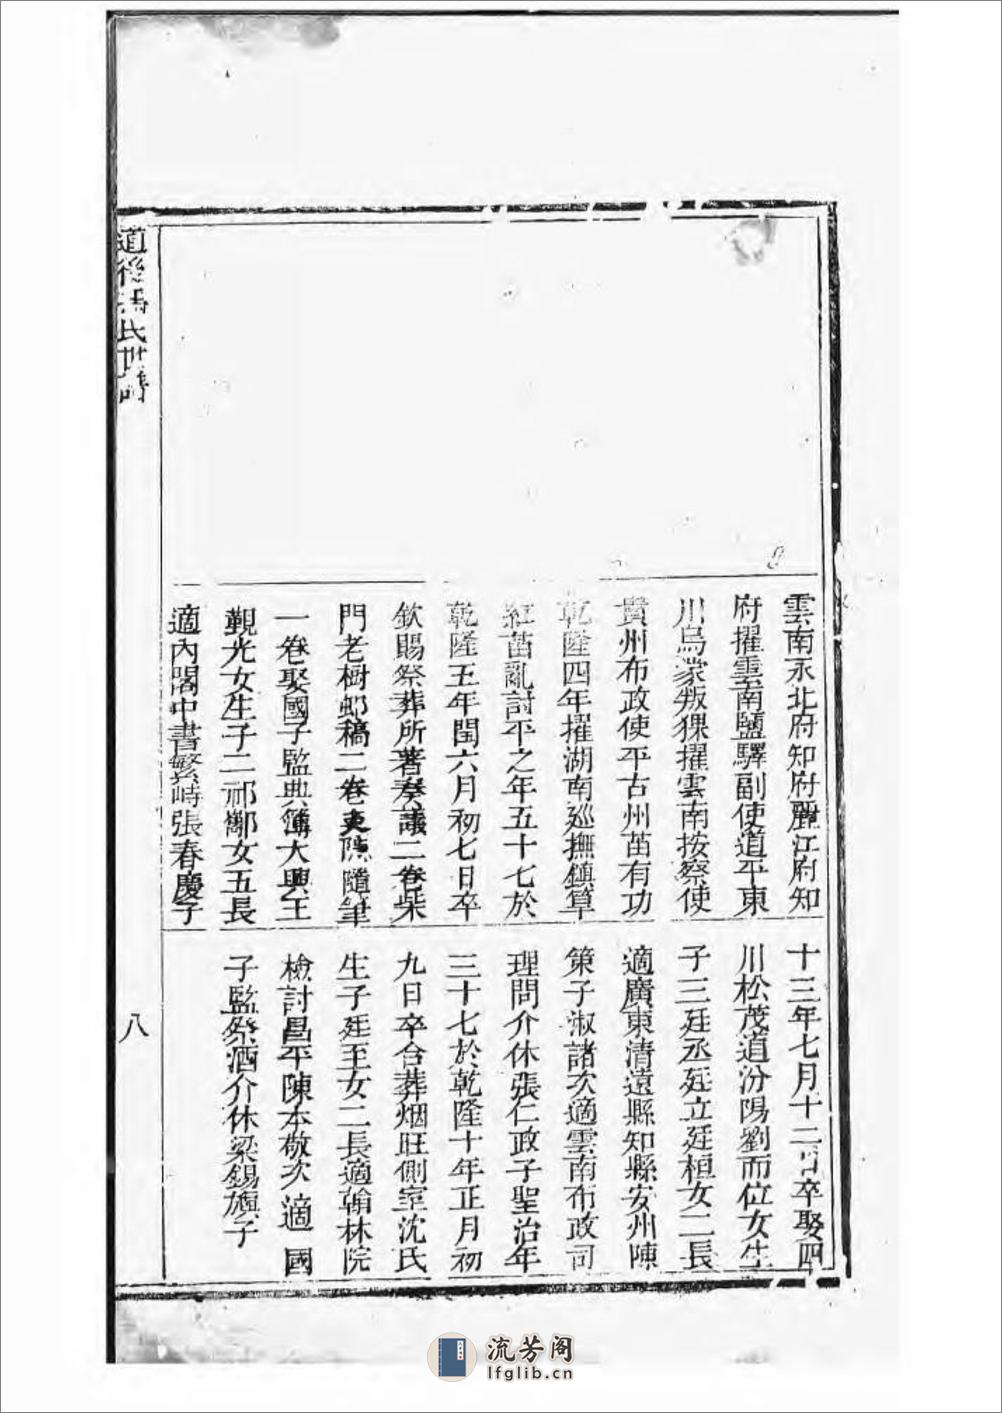 雲南永北府知府麗江府知
府擢雲南鹽驛副使道平東
川烏蒙叛猓擢雲南按察使
貴州布政使平古州苗有功
乾隆四年擢湖南廵撫鎮筸
紅苗亂討平之年五十七於
乾隆五年閏六月初七日卒
欽賜祭葬所著奏議二卷柴
門老樹邨稿二卷夷隨筆
一卷娶國子監典簿大興王
觐光女生子二祁鄩女五長
適內閣中書繁峙張春慶子
十三年七月十二日卒娶四
川松茂道汾陽劉而位女生
子三廷丞廷立廷桓女二長
適廣東清遠縣知縣安州陳
策子淑諸次適雲南布政司
理問介休張仁政子聖治年
三十七於乾隆十年正月初
九日卒合葬烟旺側室沈氏
生子廷至女二長適翰林院
檢討昌平陳本敬次適國
子監祭酒介休梁錫旟子
道後馮氏世譜
八
流芳阁
lfglib.cn